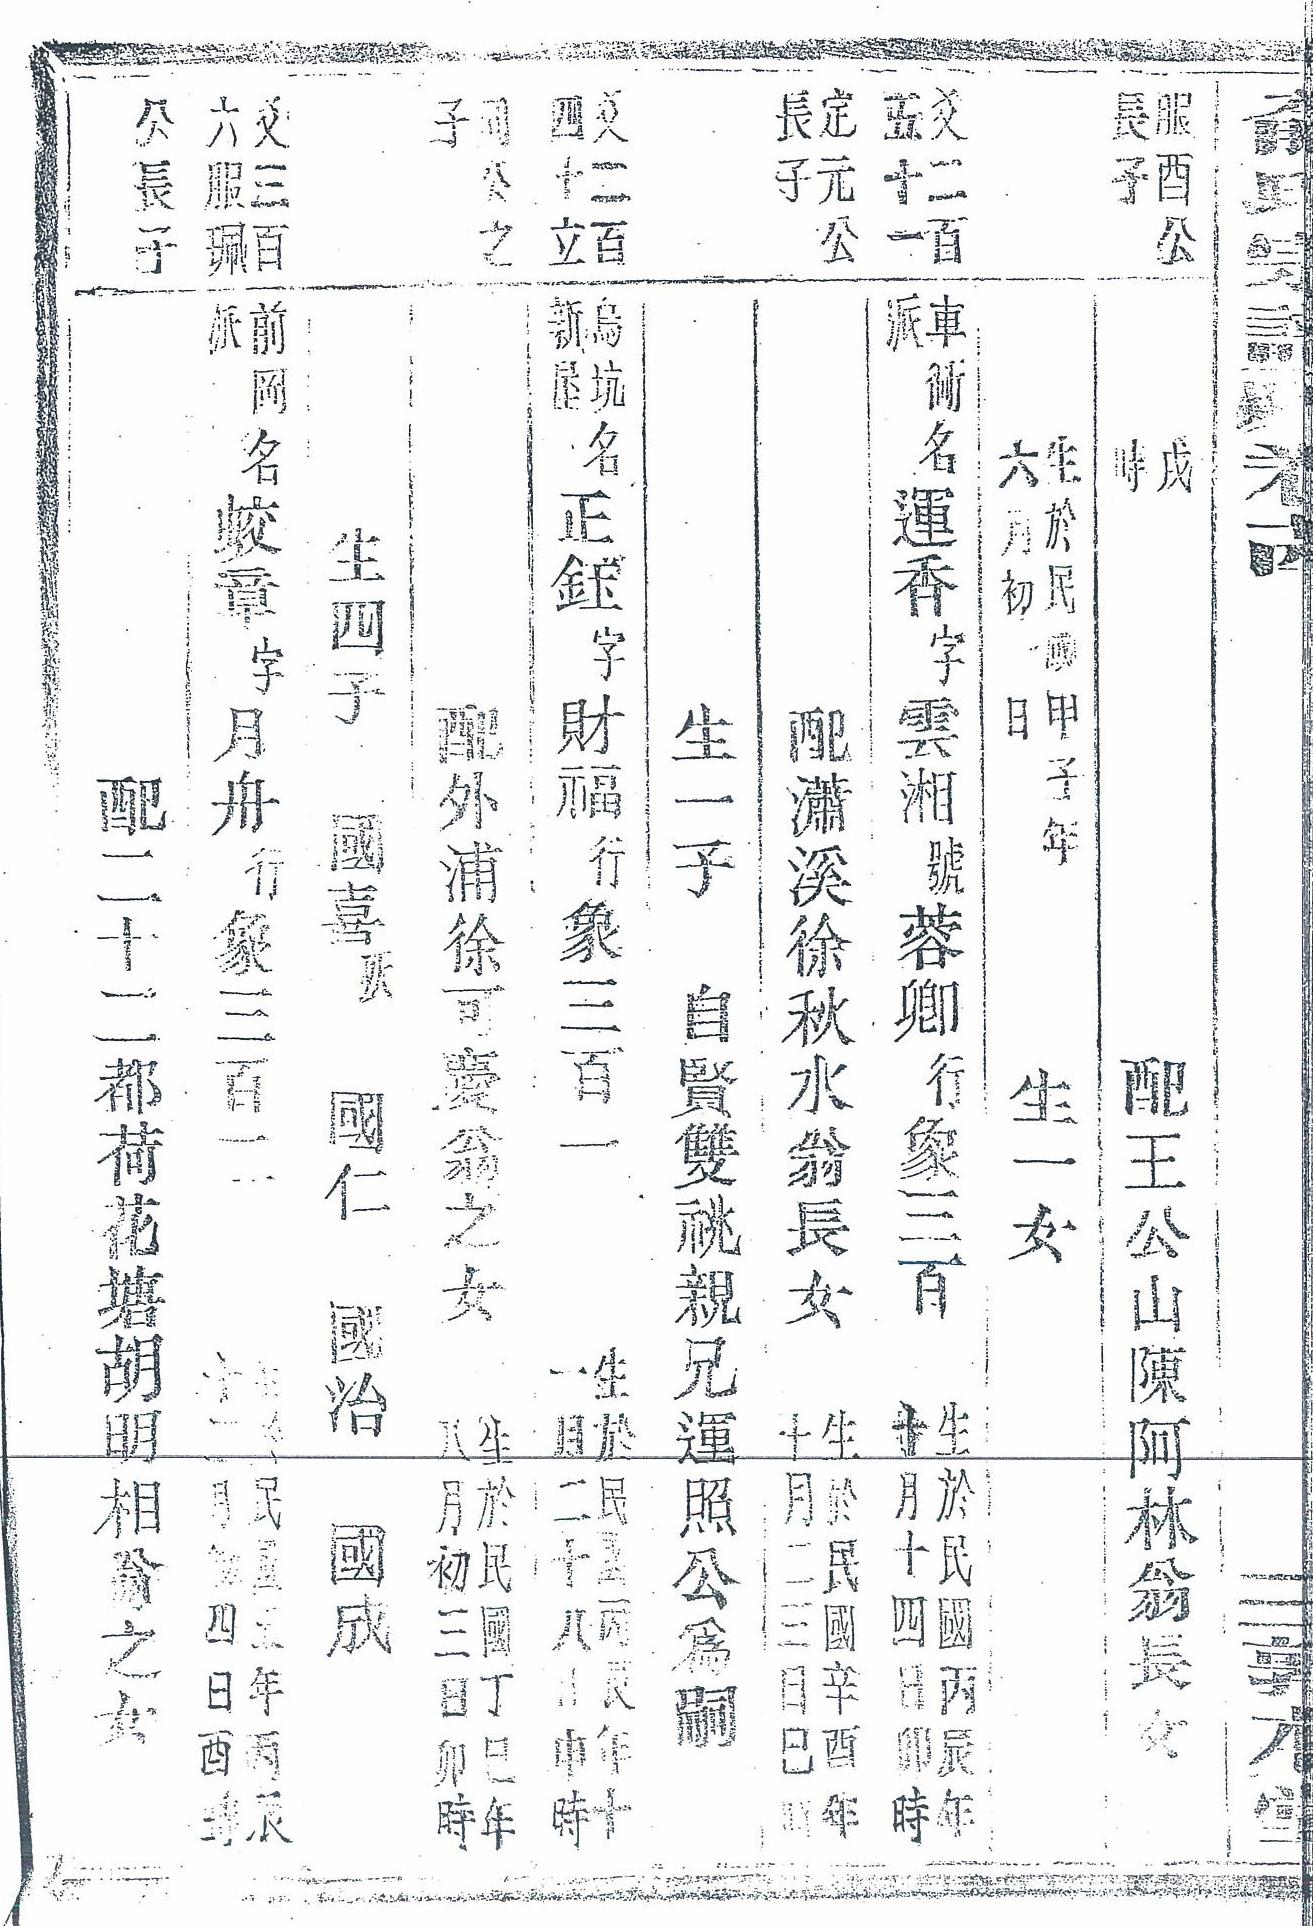 服酉公
長子
戌
時
配王公山陳阿林翁長女
生於民國甲子年
六月初 日
生一女
爻二百
五十一
車衕
派
名運香字雲湘號蓉卿行象三百
生於民國丙辰年
十月十四日卯時
定元公
長子
配瀟溪徐秋水翁長女
生於民國辛酉年
十月二三日巳
生一子 自賢雙祧親兄運照公為嗣
爻二百
四十立
烏坑
新
名正鈺字財福行象三百一
生於民國丙辰年十
一月二十八日申時
公之
子
配外浦徐可慶翁之女
生於民國丁巳年
八月初三日卯時
生四子 國喜 國仁 國治 國成
爻三百
六服珮
前岡
派
名蛟章字月舟行象三百一
民國五年丙辰
月初四日酉時
公長子
配二十二都荷花塘胡明相翁之女